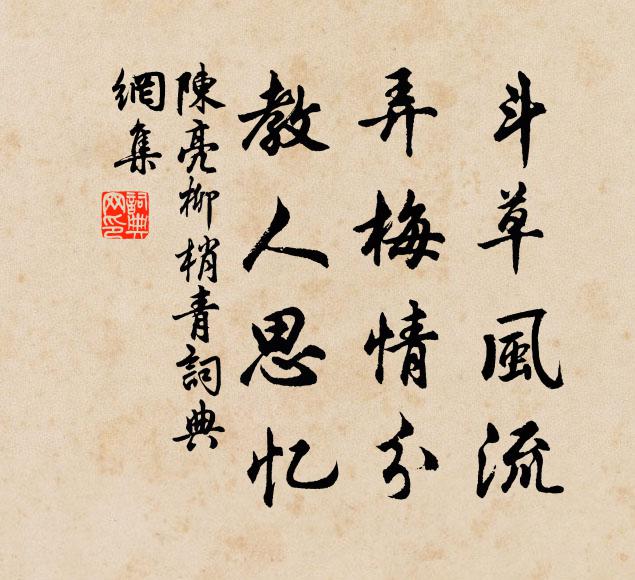 斗草風流
弄梅情分
教人思忆
陳亮柳梢青詞典
網集
詞典
网印